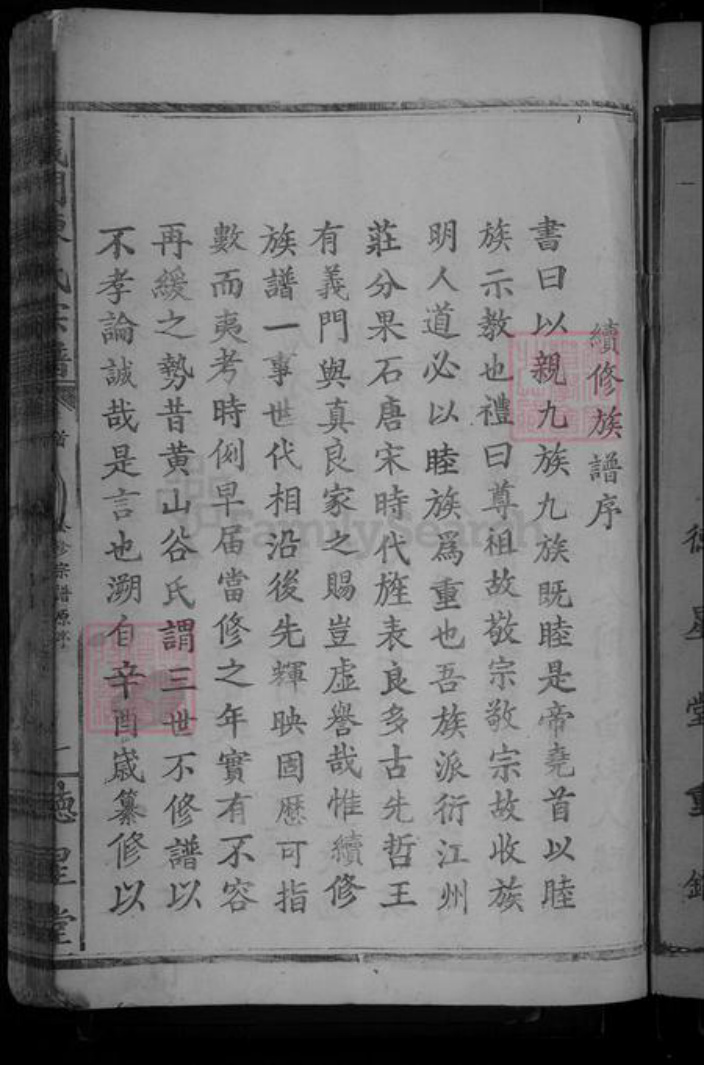 續修族譜序
書曰以親九族九族既睦是帝堯首以睦
族示教也禮曰尊祖故敬宗敬宗故收族
明人道必以睦族爲重也吾族派衍江州
莊分果石唐宋時代旌表良多古先哲王
有義門與真良家之賜豈虛譽哉惟續修
族譜一事世代相沿後先輝映固歷可指
數而夷考時例早届當修之年實有不容
再緩之勢昔黃山谷氏謂三世不修譜以
不孝論誠哉是言也溯自辛酉歲纂修以
義門陳氏宗譜
首
修宗譜原序
德星堂
德星堂重鐫
FamilySearch